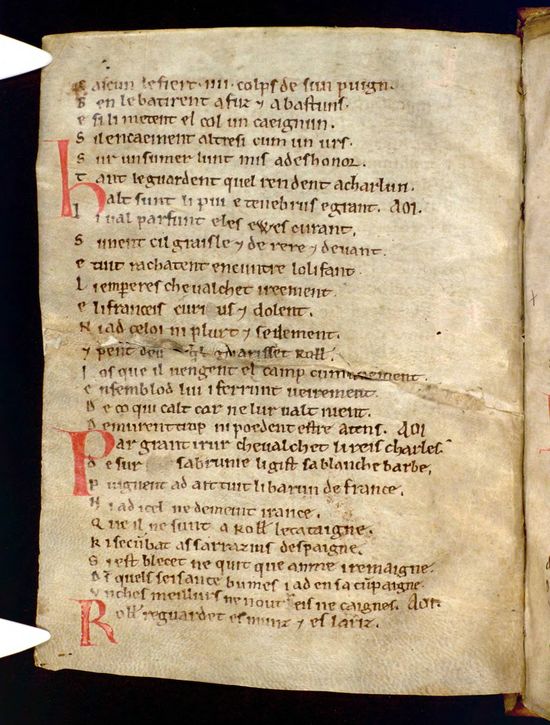 C aicun le fiert .IIII. colps de sun puign.
B en le batirent a fuz ⁊ a bastuns.
e si li metent el col un caeignun.
S il encaeinent altresi cum un urs.
S ur un sumer lunt mis a deshonor.
T ant le guardent quel rendent a charlun.
h alt sunt li pui e tenebrus e grant. AOI.
l i val parfunt e les ewes curant.
S unent cil graisle ⁊ de rere ⁊ devant.
e tuit rachatent encuntre lolifant.
L i empereres chevalchet ireement.
e li franceis curius ⁊ dolent.
N i ad celoi ni plurt ⁊ se dement.
⁊ p̄ent deu quil guarisset Roll.
I os que il vengent el camp cumunement.
e nsemblod lui i ferrunt veirement.
D e co qui calt car ne lur valt nient.
D emurent trop ni poedent estre a tens. AOI
P ar grant irur chevalchet li reis charles.
d esur sa brunie li gist sa blanche barbe.
P uignent ad ait tuit li barun de france.
N i ad icel ne demeint irance.
Q ue il ne sunt a Roll̄ le cataigne.
K i se cūbat as sarrazins despaigne.
S i est blecet ne quit que anme i remaigne.
D s̄ quels seisante humes i ad en sa cūpaigne.
V nches meillurs nen out reis ne caignes. AOI.
R oll̄ reguardet es munz ⁊ es lariz.